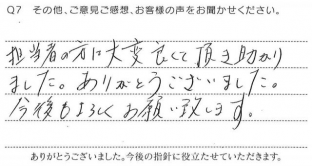 Q7 その他、ご意見ご感想、お客様の声をお聞かせください。
担当者の方に大変良くて頂き助かり
ました。ありがとうございました。
今後もよろしくお願い致します。
ありがとうございました。今後の指針に役立たせていただきます。